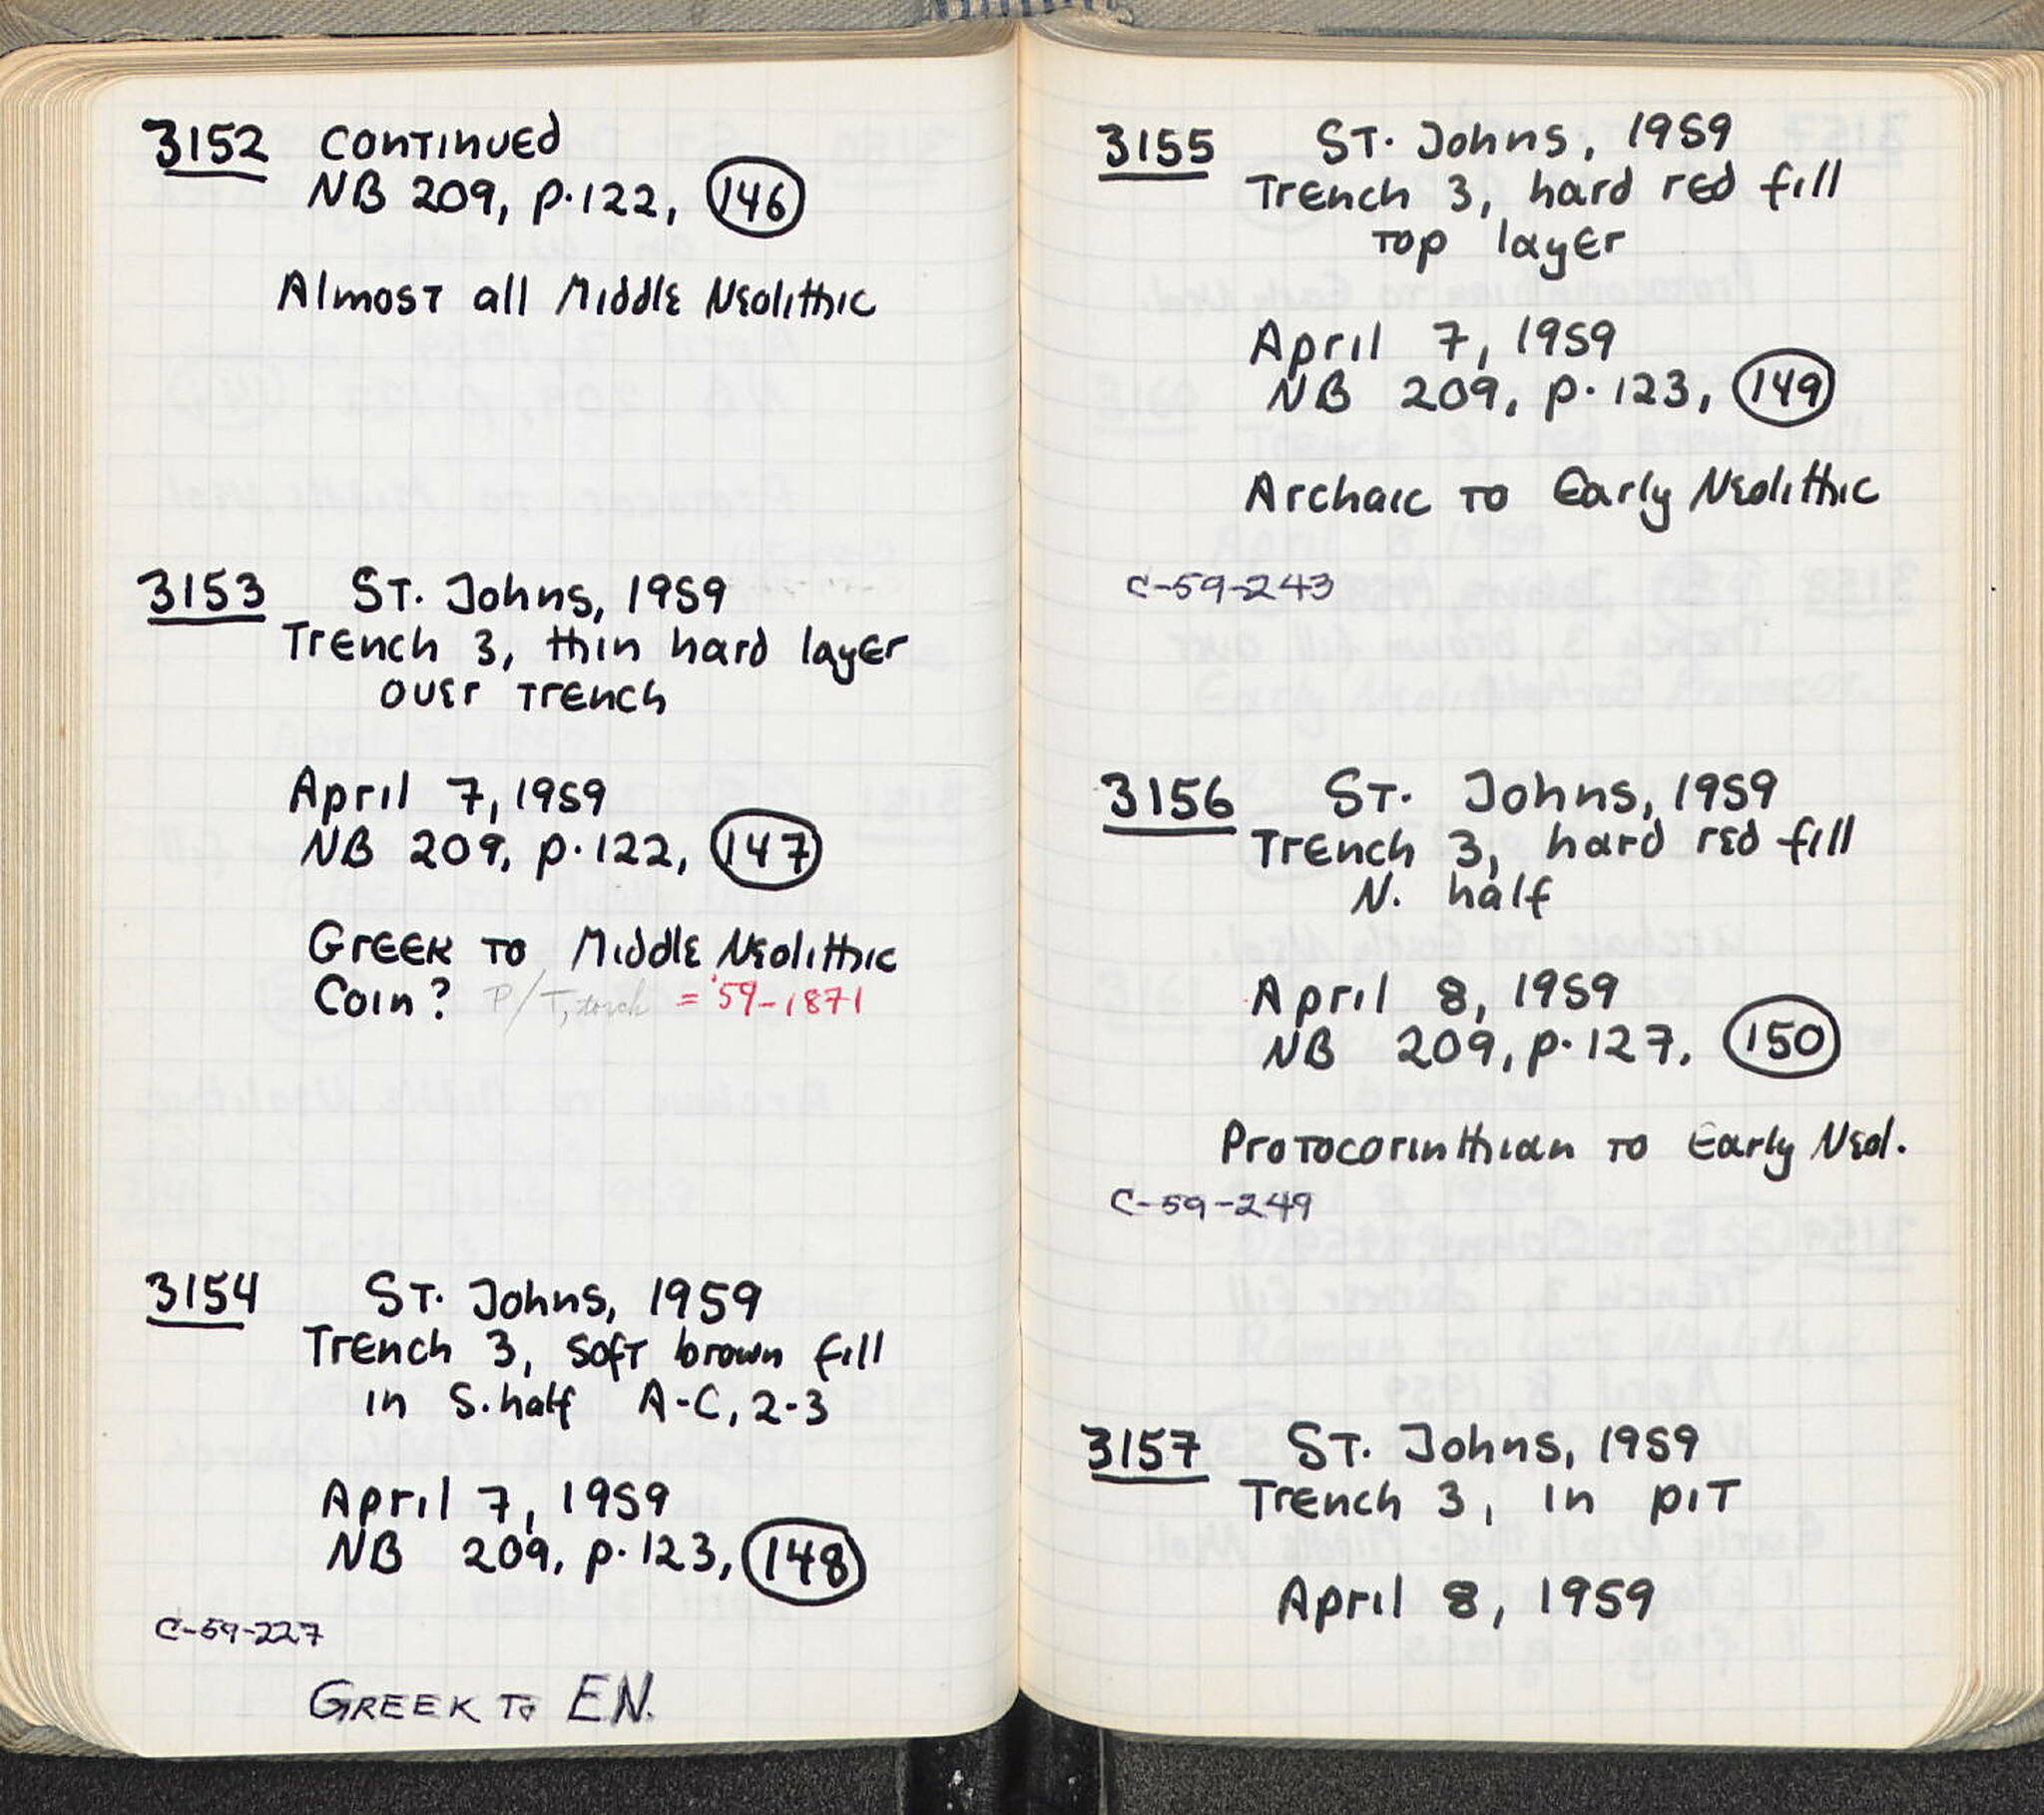 3152 Continued
NB 209, p. 122, 146
Almost all Middle Neolithic
3153 St. Johns, 1959
Trench 3, thin hard layer
over trench
April 7, 1959
NB 209, p. 122, 147
Greek to Middle Neolithic
Coin? P/T, = '59-1871
3154 St. Johns, 1959
Trench 3, soft brown fill
in S. half A-C, 2-3
April 7, 1959
NB 209, p. 123, 148
C-59-227
GREEK To EN.
3155 St. Johns, 1959
Trench 3, hard red fill
top layer
April 7, 1959
NB 209, p. 123, 149
Archaic to Early Neolithic
C-59-243
3156 St. Johns, 1959
Trench 3, hard red fill
N. half
April 8, 1959
NB 209, p. 127, 150
Protocorinthian to Early Neol.
C-59-249
3157 St. Johns, 1959
Trench 3, in pit
April 8, 1959